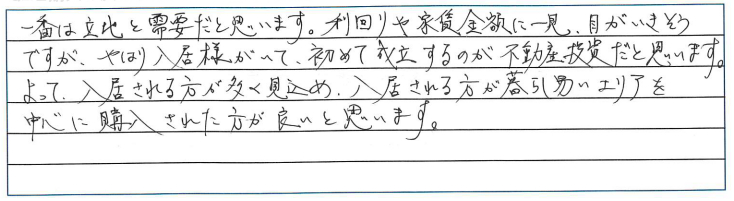 一番は立地と需要だと思います。利回りや家賃金額に一見、目がいきそう
ですが、やはり入居様がいて、初めて成立するのが不動産投資だと思います。
よって、入居される方が多く見込め、入居される方が募引易いエリアを
中心に購入された方が良いと思います。